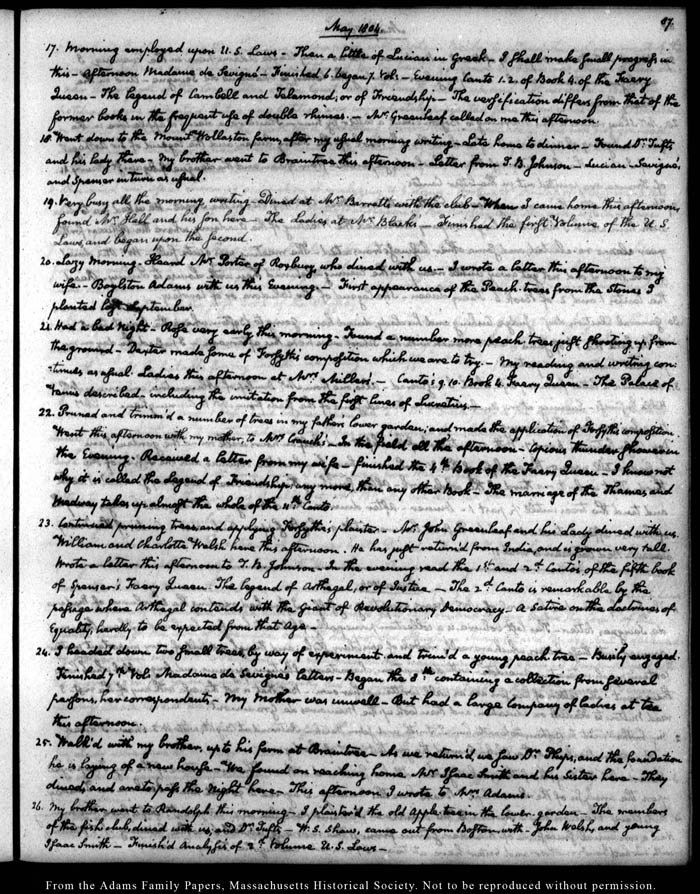 May 1804.
87.
17. Morning employed upon U.S. Laws - Then a little of Lucian in Greek - I shall make small progress in
this - Afternoon Madame de Sevigné - Finished 6. began 7. Vol: - Evening Canto 1. 2. of Book 4. of the Faery
Queen - The Legend of Cambell and Telamond, or of Friendship - The versification differs from that of the
former books in the frequent use of double rhimes. - Mr. Greenleaf called on me this afternoon.
18. Went down to the Mount Wollaston farm, after my usual morning writing - Late home to dinner - Found Dr. Tufts
and his lady there - My brother went to Braintree this afternoon - Letter from T. B. Johnson - Lucian - Sevigné,
and Spenser in turn as usual.
19. Very busy all the morning, writing - Dined at Mr. Berretts with the club - When I came home this afternoon,
found Mr. Hall and his son here - The Ladies at Mr. Blacks - Finished the first Volume of the U.S.
Laws, and began upon the second.
20. Lazy Morning - Heard Mr. Porter of Roxbury, who dined with us. - I wrote a letter this afternoon to my
wife - Boylston Adams with us this Evening - First appearance of the Peach-trees from the Stones I
planted last September.
21. Had a bad Night - Rose very early this morning - Found a number more peach trees just shooting up from
the ground - Dexter made some of Forsyth's composition which we are to try. - My reading and writing con-
tinues as usual. Ladies this afternoon at Mrs. Miller's. - Canto's 9. 10. Book 4. Faery Queen - The Palace of
Venus described - including the imitation from the first lines of Lucretius -
22. Pruned and trimm'd a number of trees in my fathers lower garden; and made the application of Forsyths composition.
Went this afternoon with my mother, to Mrs. Cranch's - In the field all the afternoon - Copious thunder shower in
the Evening. Received a letter from my wife - finished the 4th. Book of the Faery Queen - I know not
why it is called the Legend of Friendship, any more than any other Book - The marriage of the Thames, and
Medway takes up almost the whole of the 11th. Canto.
23. Continued pruning trees, and applying Forsyth's plaister - Mr. John Greenleaf and his Lady dined with us.
William and Charlotte Welsh here this afternoon. He has just return'd from India, and is grown very tall.
Wrote a letter this afternoon to T. B. Johnson - In the evening read the 1st. and 2d. Canto's of the fifth book
of Spenser's Faery Queen. The legend of Arthegal, or of Justice - The 2d. Canto is remarkable by the
passage where Arthegal contends with the Giant of Revolutionary Democracy - A Satire on the doctrines of
Equality, hardly to be expected from that Age -
24. I headed down two small trees, by way of experiment, and trim'd a young peach tree - Busily engaged.
Finished 7th Vol: Madame de Sevigne's letters - Began the 8th. containing a collection from several
persons, her correspondents - My Mother was unwell - But had a large Company of ladies at tea
this afternoon.
25. Walk'd with my brother, up to his farm at Braintree - As we return'd, we saw Dr. Phips, and the foundation
he is laying of a new house - We found on reaching home Mrs. Isaac Smith and his Sister here - They
dined, and are to pass the Night here - This afternoon I wrote to Mrs. Adams.
26. My brother went to Randolph this morning - I plaister'd the old Apple-tree in the lower garden - The members
of the fish club, dined with us, and Dr. Tufts - W. S. Shaw, came out from Boston, with John Welsh, and young
Isaac Smith - Finish'd Analysis of 2d. Volume U.S. Laws -
From the Adams Family Papers, Massachusetts Historical Society. Not to be reproduced without permission.